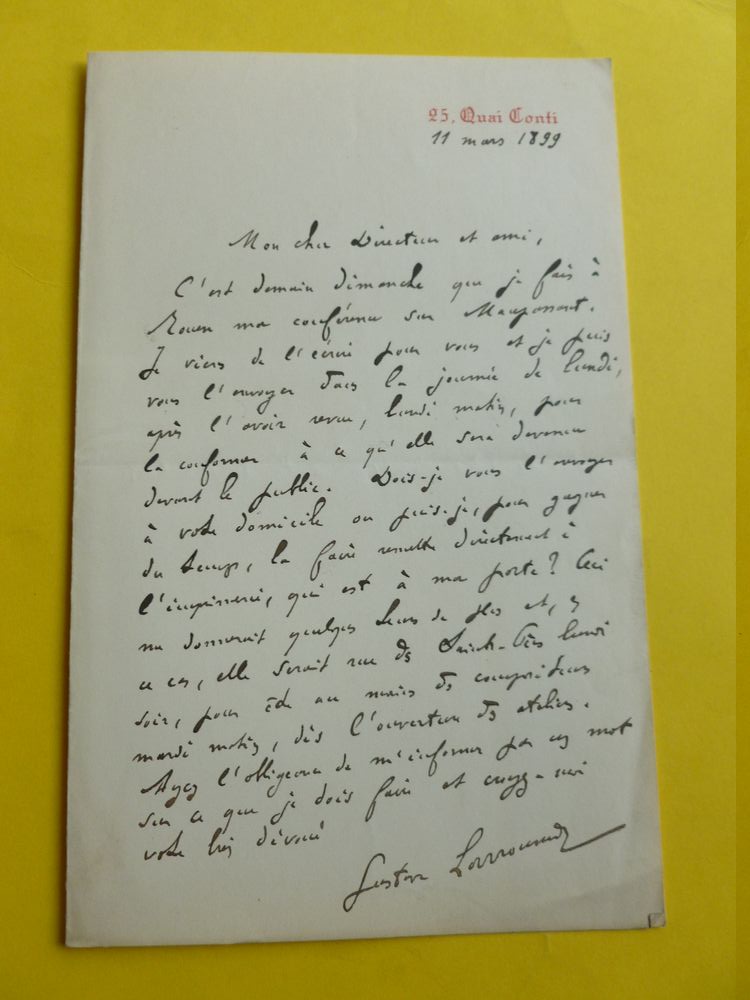 25, Quai Conti
11 mars 1899
Mon cher Directeur et ami,
C'est demain dimanche que je fais à
Rouen ma conférence sur Maupassant.
Je viens de l'écrire pour vous et je puis
vous l'envoyer dans la journée de lundi,
après l'avoir revue, lundi matin, pour
la conformer à ce qu'elle sera devenue
devant le public. Dois-je vous l'envoyer
à votre domicile ou puis-je, pour gagner
du temps, la faire remettre directement à
l'imprimerie, qui est à ma porte? Ceci
me donnerait quelques heures de plus et, en
ce cas, elle serait rue des Saints-Pères lundi
soir, pour être aux mains des compositeurs
mardi matin, dès l'ouverture des ateliers.
Ayez l'obligeance de m'informer par un mot
sur ce que je dois faire et croyez-moi
votre bien dévoué
Gustave Larroumet